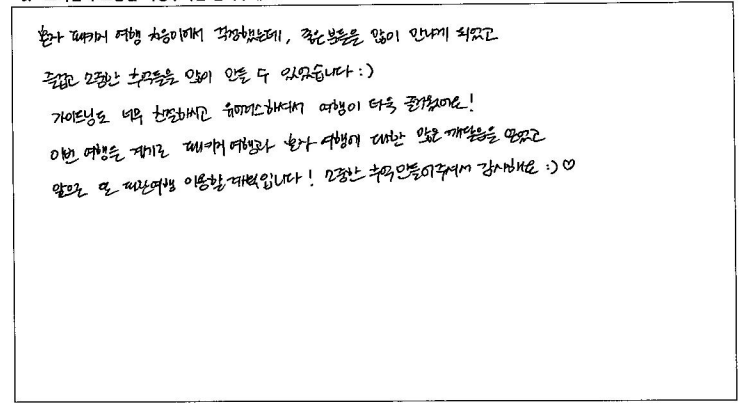 혼자 패키지 여행 처음이여서 걱정했는데, 좋은분들을 많이 만나게 되었고
즐겁고 소중한 추억들을 많이 만들 수 있었습니다 :)
가이드님도 너무 친절하시고 유머러스하셔서 여행이 더욱 즐거웠어요!
이번 여행을 계기로 패키지여행과 혼자 여행에 대한 많은 깨달음을 얻었고
앞으로 또 참좋은여행 이용할계획입니다! 소중한 추억만들어주셔서 감사해요 :) ♡